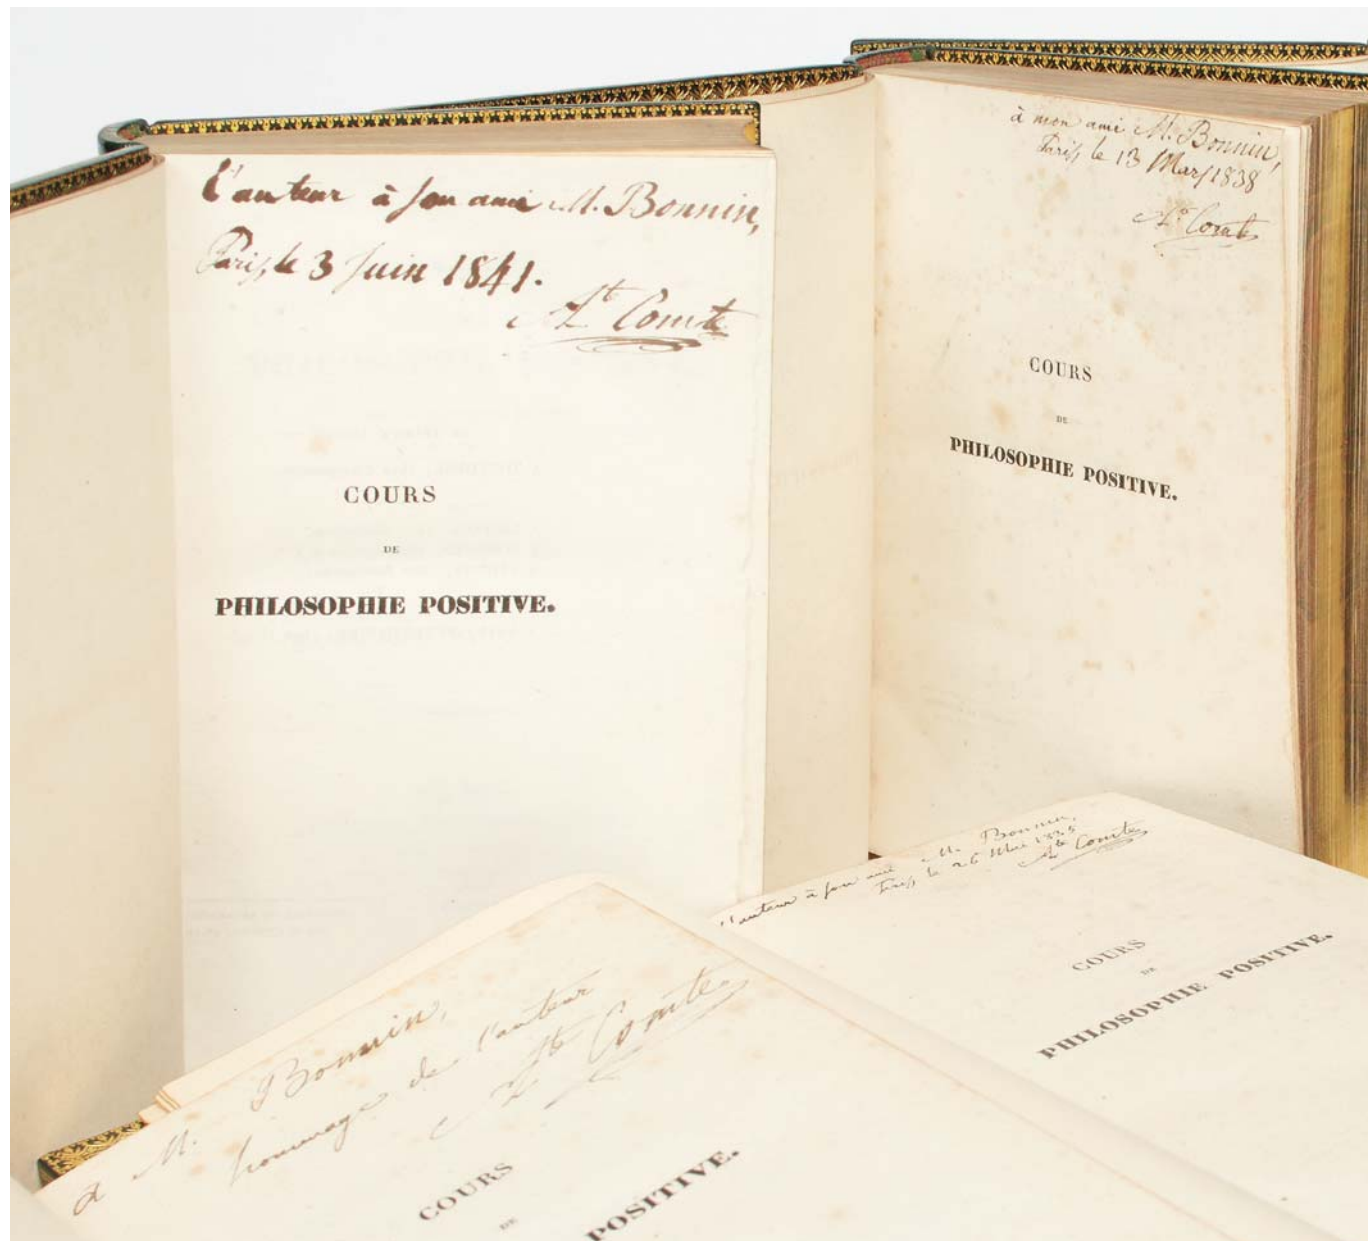 L'auteur à son ami M. Bonnin,
Paris, le 3 Juin 1841.
Ate Comte
COURS
DE
PHILOSOPHIE POSITIVE.
à mon ami M. Bonnin,
Paris, le 13 Mars 1838
Ate Comte
COURS
DE
PHILOSOPHIE POSITIVE.
L'auteur à son ami M. Bonnin,
Paris, le 26 Mai 1835
Ate Comte
COURS
DE
PHILOSOPHIE POSITIVE.
à M. Bonnin,
hommage de l'auteur
Ate Comte
COURS
DE
POSITIVE.